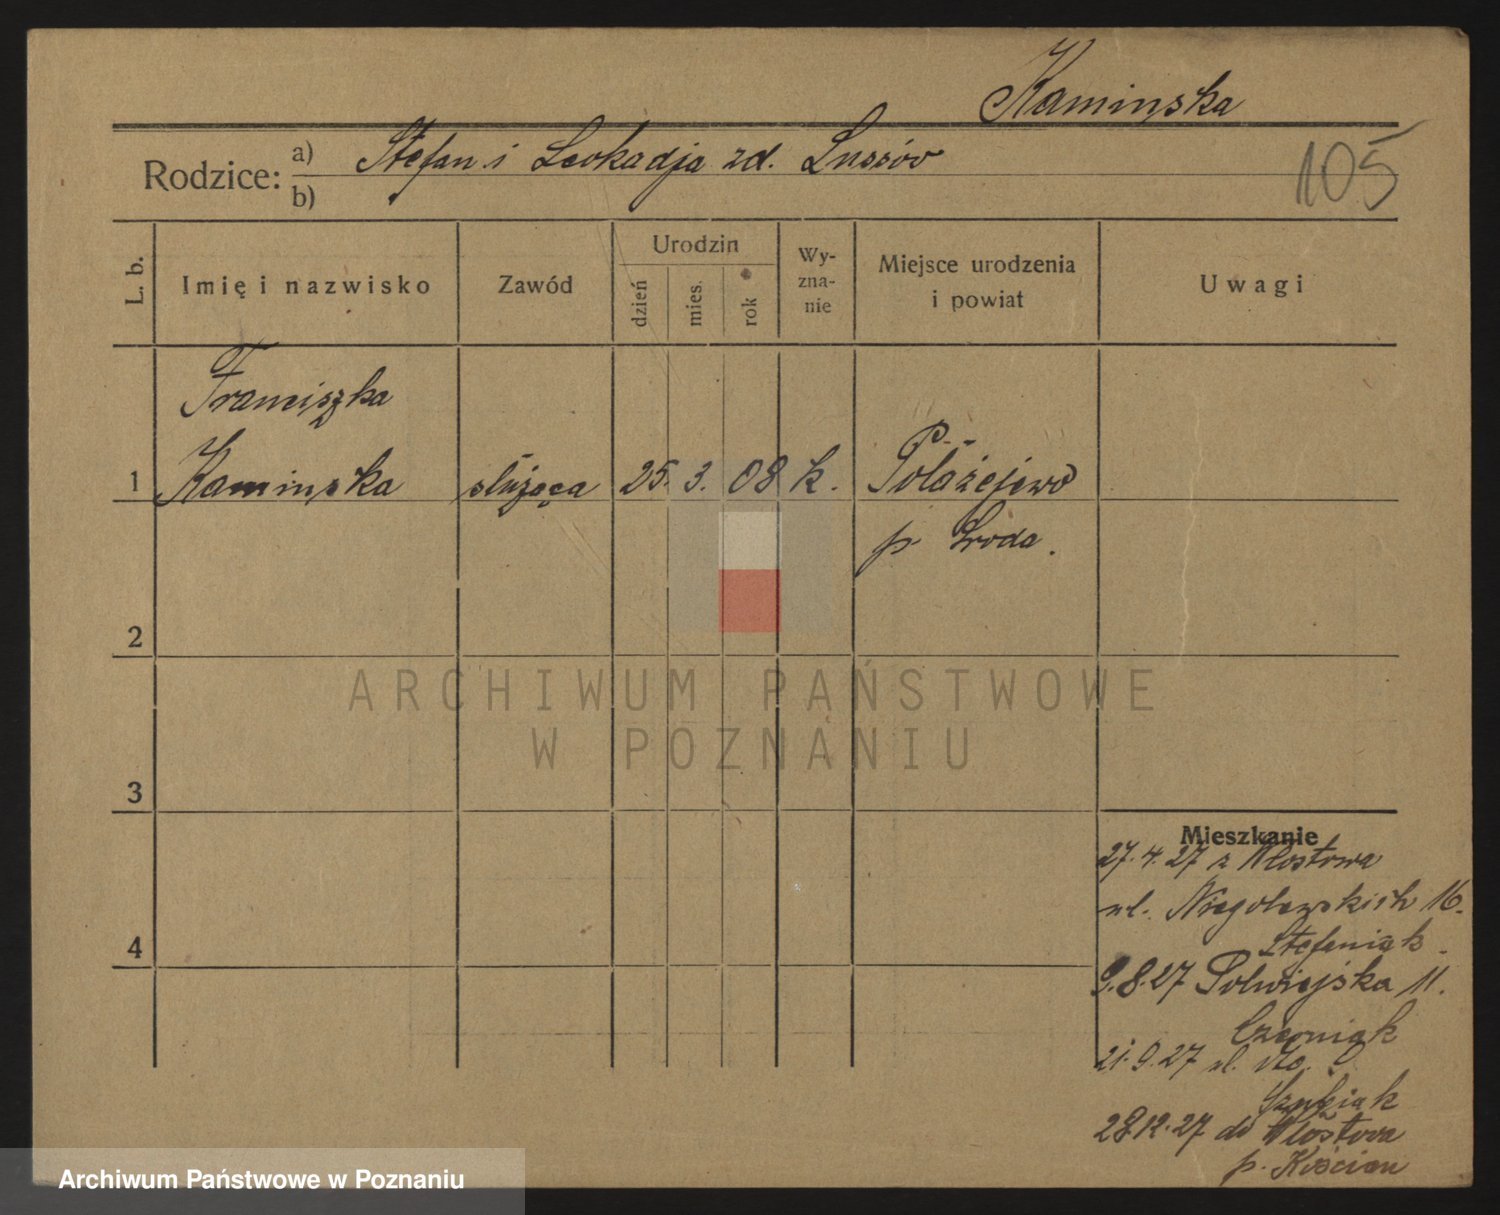 Kaminska
Rodzice: a) Stefan i Leokadja zd. Lussów
b)
105
L. b.
Imię i nazwisko
Zawód
Urodzin
dzień
mies.
rok
Wy-
zna-
nie
Miejsce urodzenia
i powiat
Uwagi
Franciszka
1 Kaminska służąca 25. 3. 08 k. Polażejewo
p. Środa.
2
ARCHIWUM PAŃSTWOWE
W POZNANIU
3
Mieszkanie
27.4.27 z Włostowa
ul. Niegolewskich 16.
Stefaniak.
4
9.8.27 Półwiejska 11.
Czerniak
21.9.27 ul.
28.12.27 do Włostowa
p. Kościan
Archiwum Państwowe w Poznaniu